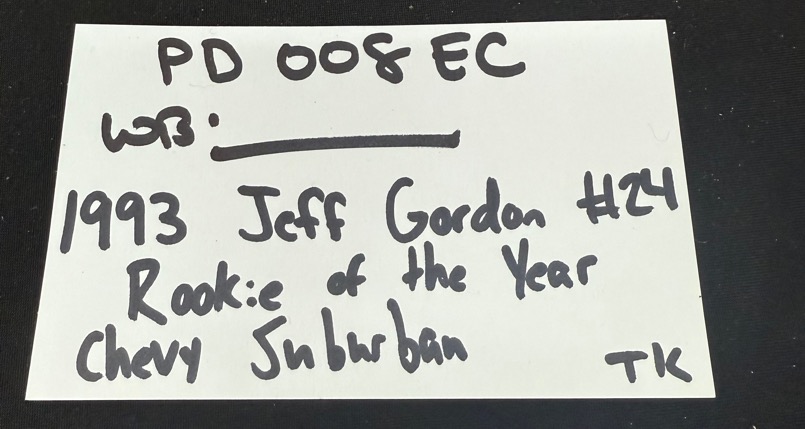 PD 008 EC
WB: ________
1993 Jeff Gordon #24
Rookie of the Year
Chevy Suburban
TK